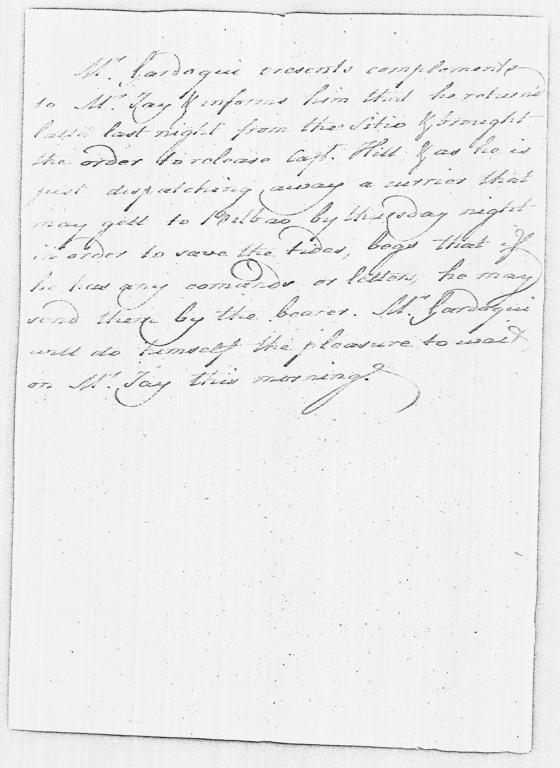 Mr. Gardoqui presents complements
to Mr. Jay & informs him that he return'd
late last night from the Sitio & brought
the order to release Capt. Hill & as he is
just dispatching away a currier that
may gett to Bilbao by thursday night
in order to save the tides, begs that if
he has any comands or letters, he may
send them by the bearer. Mr. Gardoqui
will do himself the pleasure to wait
on Mr. Jay this morning.